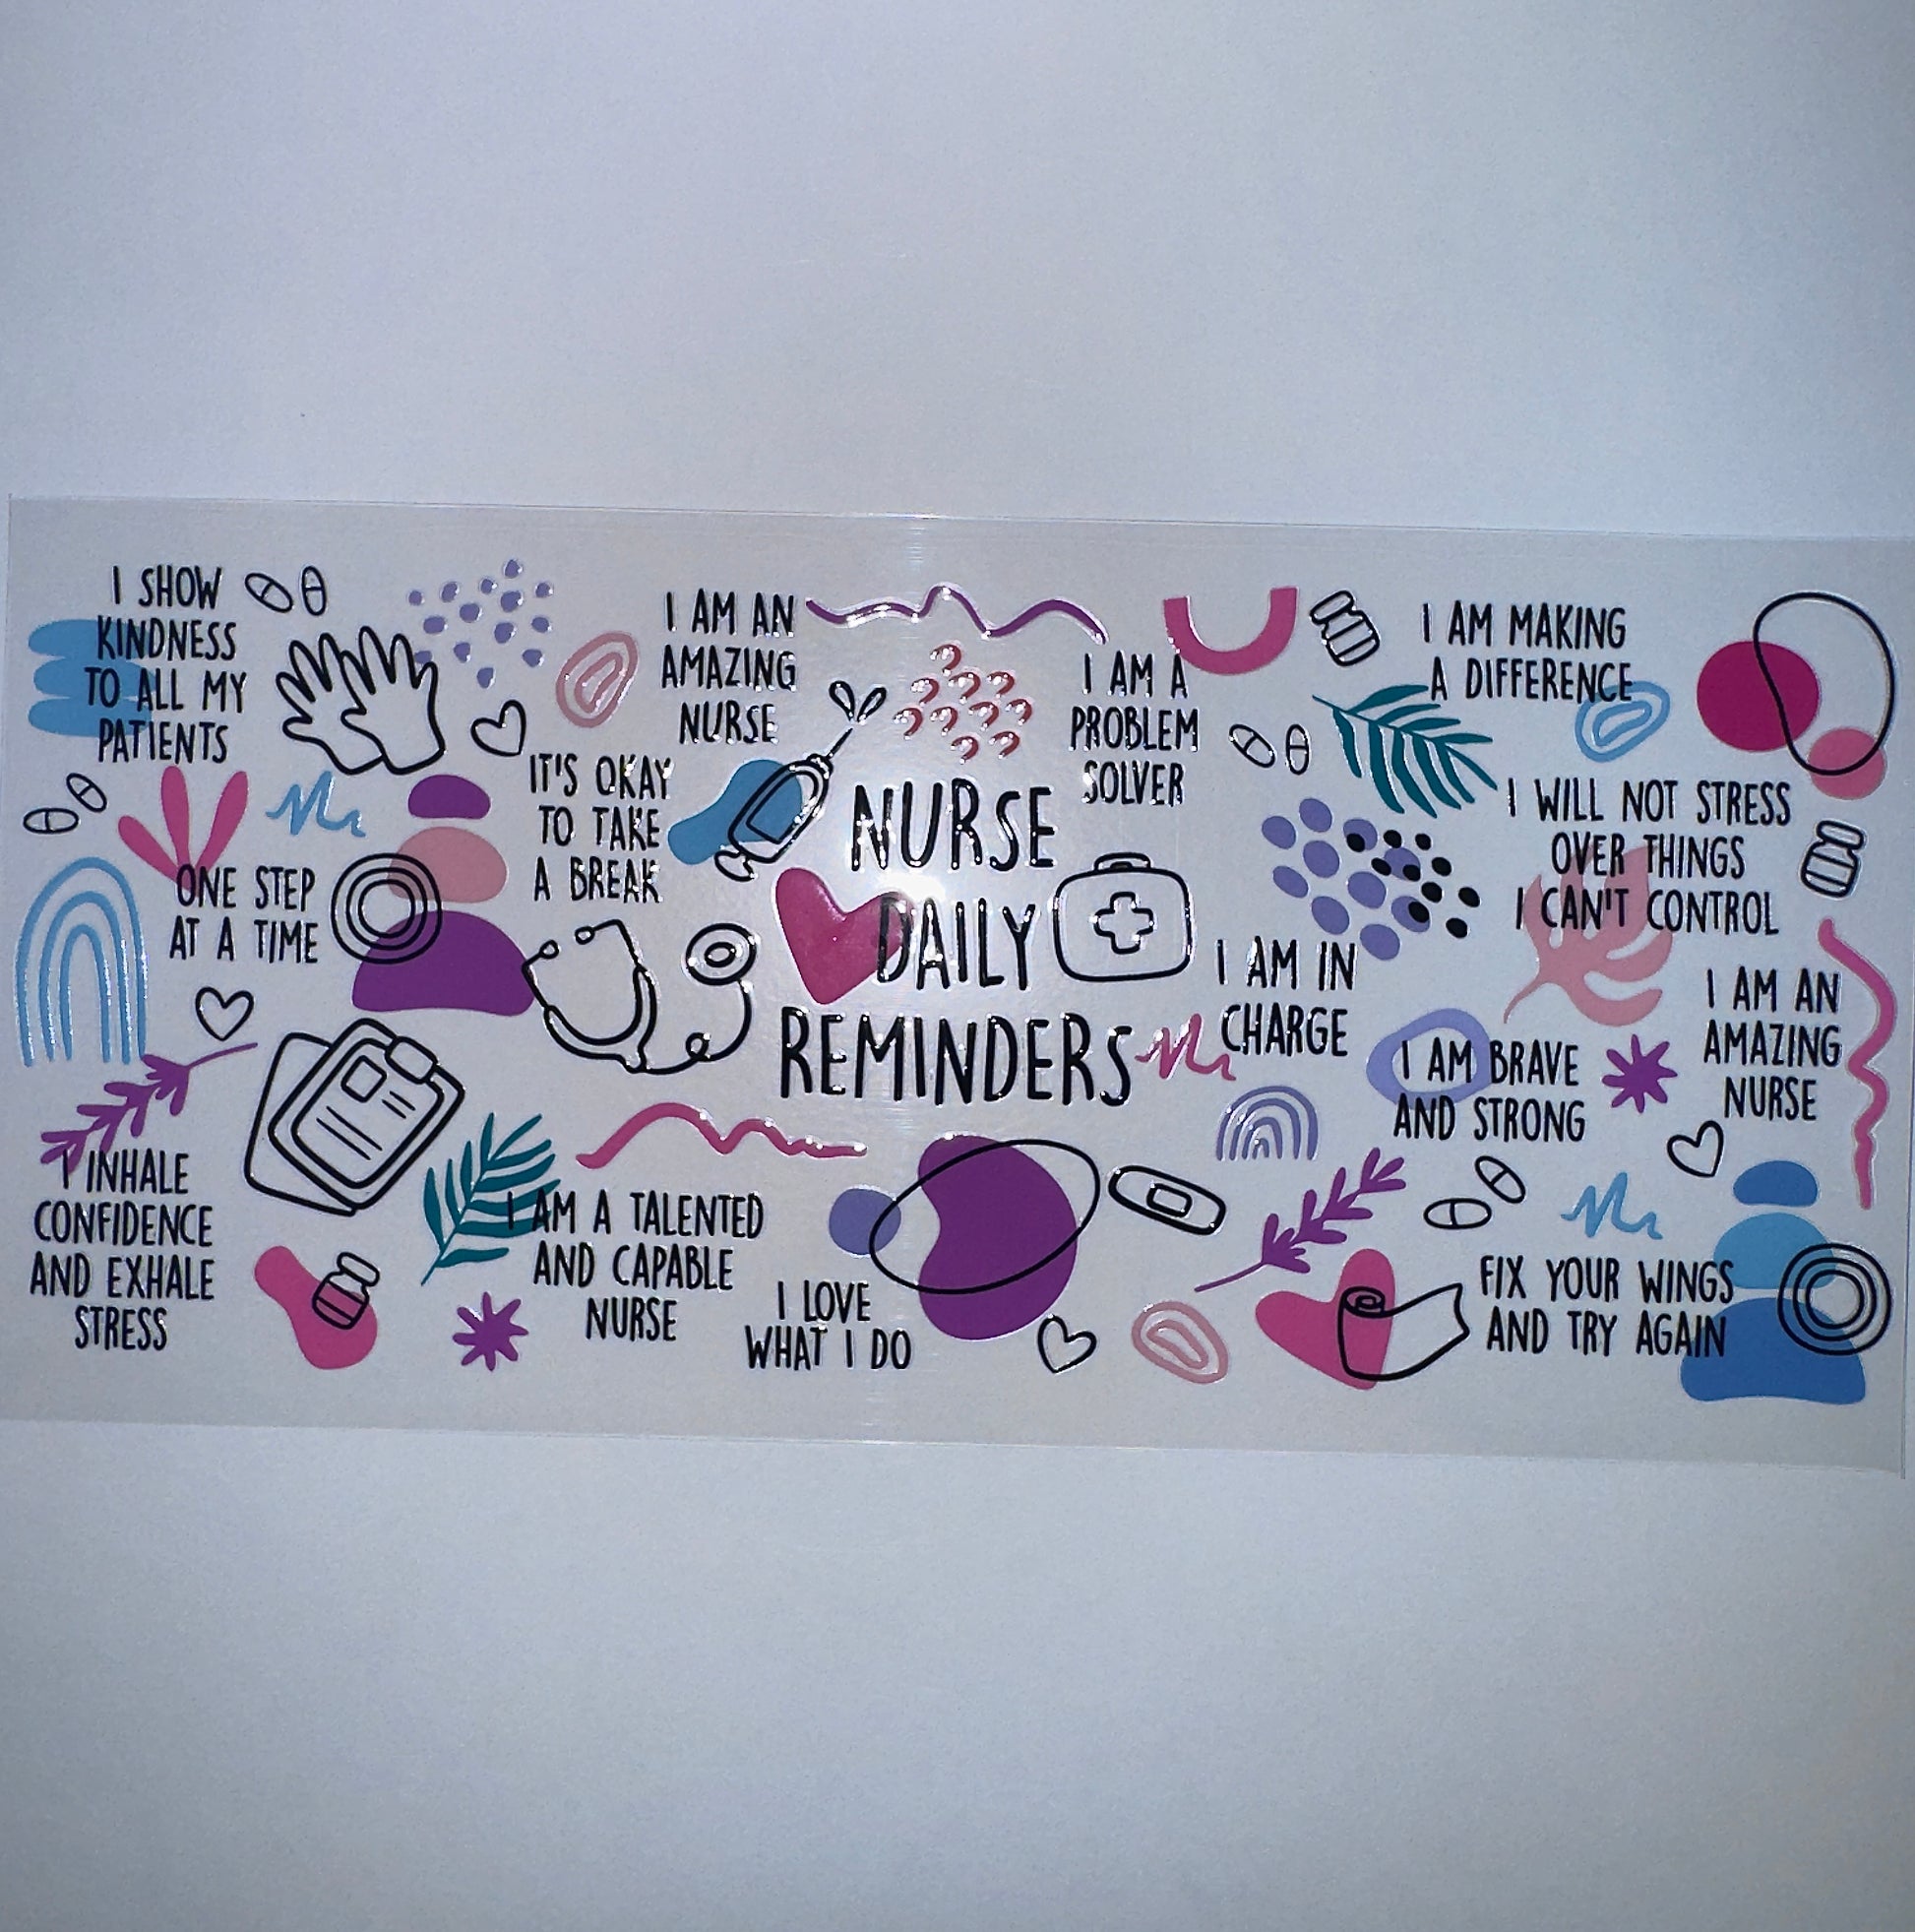 I SHOW
KINDNESS
TO ALL MY
PATIENTS
I AM AN
AMAZING
NURSE
I AM A
PROBLEM
SOLVER
I AM MAKING
A DIFFERENCE
IT'S OKAY
TO TAKE
A BREAK
ONE STEP
AT A TIME
NURSE
DAILY
REMINDERS
I WILL NOT STRESS
OVER THINGS
I CAN'T CONTROL
I AM IN
CHARGE
I AM BRAVE
AND STRONG
I AM AN
AMAZING
NURSE
I INHALE
CONFIDENCE
AND EXHALE
STRESS
I AM A TALENTED
AND CAPABLE
NURSE
I LOVE
WHAT I DO
FIX YOUR WINGS
AND TRY AGAIN